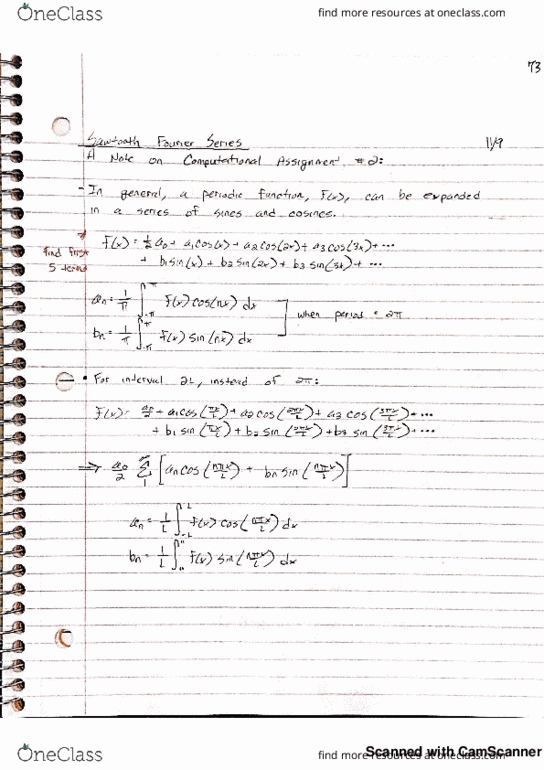 OneClass
find more resources at oneclass.com
73
Sawtooth Fourier Series 11/9
A Note on Computational Assignment #2:
- In general, a periodic function, F(x), can be expanded
in a series of sines and cosines.
F(x) = 1/2 a0 + a1cos(x) + a2cos(2x) + a3cos(3x) + ...
+ b1sin(x) + b2 sin(2x) + b3 sin(3x) + ...
find first
5 terms
an = 1/π ∫-π^π F(x) cos(nx) dx
when period = 2π
bn = 1/π ∫-π^π F(x) sin(nx) dx
• For interval 2L, instead of 2π:
F(x) = a0/2 + a1cos(πx/L) + a2 cos(2πx/L) + a3 cos(3πx/L) + ...
+ b1 sin(πx/L) + b2 sin(2πx/L) + b3 sin(3πx/L) + ...
⇒ a0/2 Σ1^∞ [an cos(nπx/L) + bn sin(nπx/L)]
an = 1/L ∫-L^L F(x) cos(nπx/L) dx
bn = 1/L ∫ F(x) sin(nπx/L) dx
OneClass
find more resources at oneclass.com
Scanned with CamScanner